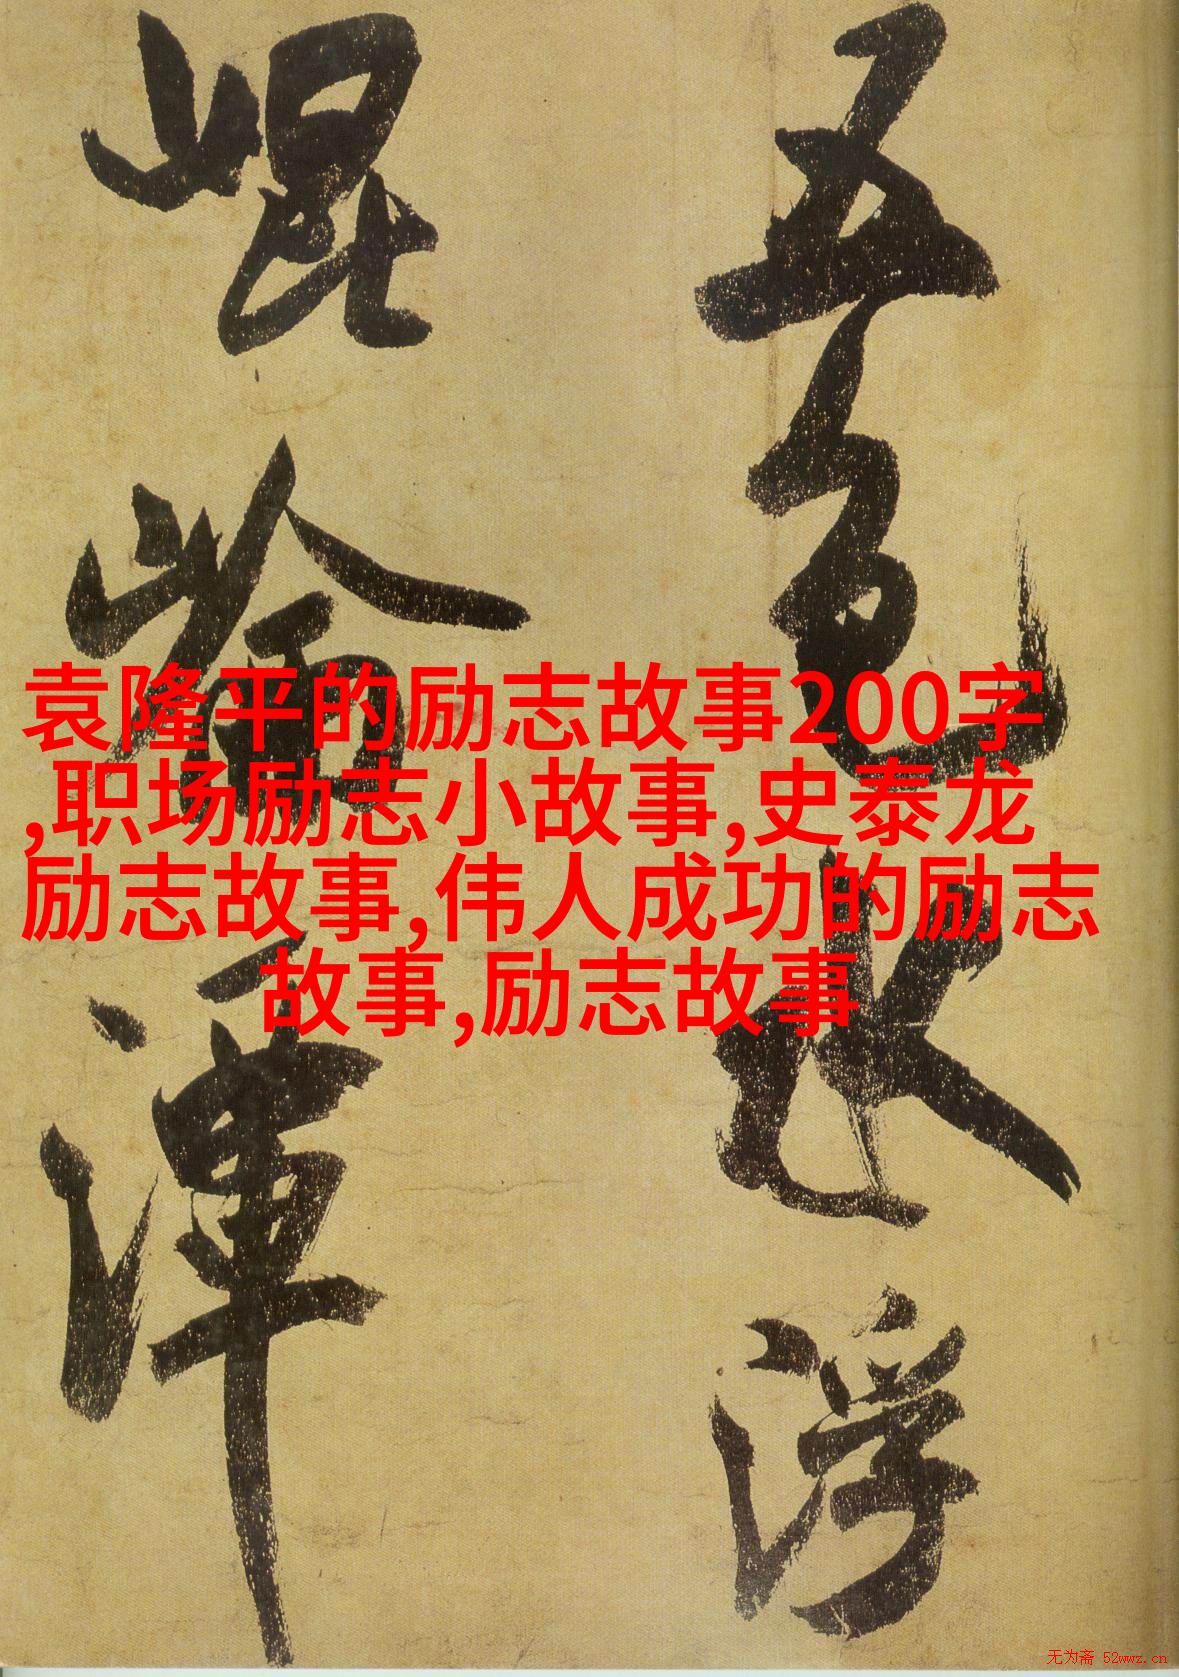 五色水浮
崐崘潭
袁隆平的励志故事200字
,职场励志小故事,史泰龙
励志故事,伟人成功的励志
故事,励志故事
无为斋 52wwz.cn